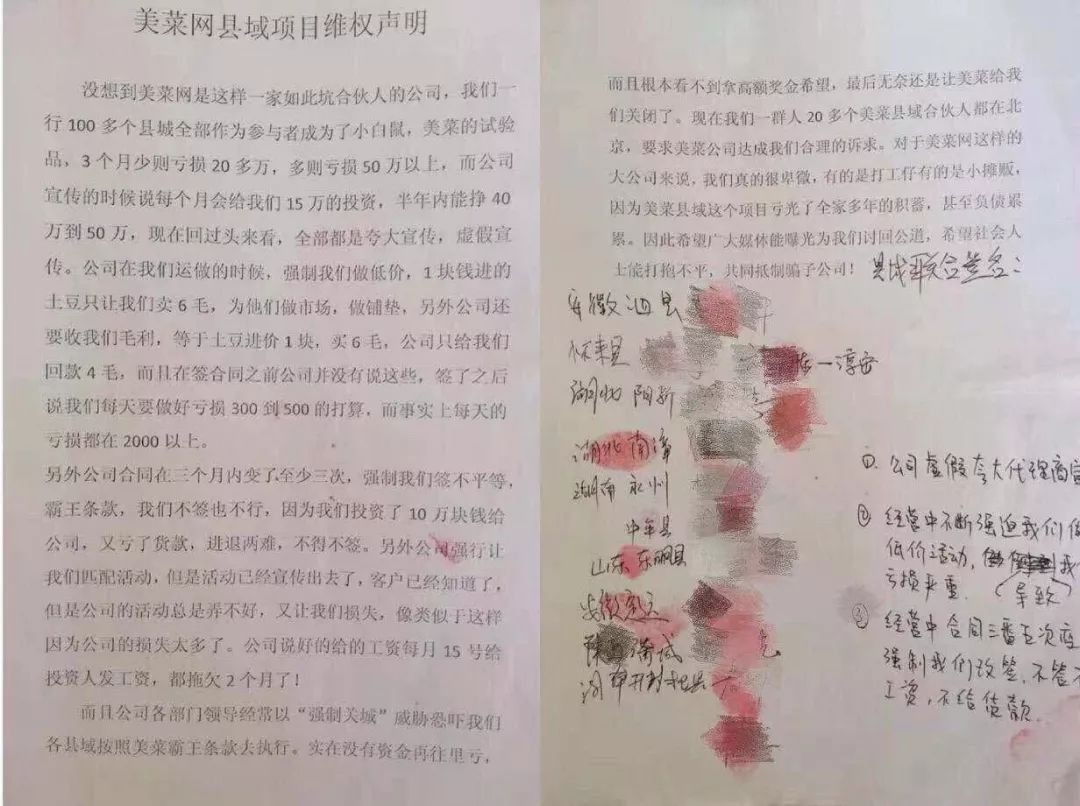 美菜网县域项目维权声明
没想到美菜网是这样一家如此坑合伙人的公司，我们一
行 100 多个县城全部作为参与者成为了小白鼠，美菜的试验
品、3 个月少则亏损 20 多万，多则亏损 50 万以上，而公司
宣传的时候说每个月会给我们 15 万的投资，半年内能挣 40
万到 50 万，现在回过头来看，全部都是夸大宣传，虚假宣
传。公司在我们运做的时候，强制我们做低价，1 块钱进的
土豆只让我们卖 6 毛，为他们做市场，做铺垫，另外公司还
要收我们毛利，等于土豆进价 1 块，买 6 毛，公司只给我们
回款 4 毛，而且在签合同之前公司并没有说这些，签了之后
说我们每天要做好亏损 300 到 500 的打算，而事实上每天的
亏损都在 2000 以上。
另外公司合同在三个月内变了至少三次，强制我们签不平等，
霸王条款，我们不签也不行，因为我们投资了 10 万块钱给
公司，又亏了货款，进退两难，不得不签。另外公司强行让
我们匹配活动，但是活动已经宣传出去了，客户已经知道了，
但是公司的活动总是弄不好，又让我们损失，像类似于这样
因为公司的损失太多了。公司说好的给的工资每月 15 号给
投资人发工资，都拖欠 2 个月了！
而且公司各部门领导经常以“强制关城”威胁恐吓我们
各县域按照美菜霸王条款去执行。实在没有资金再往里亏，
而且根本看不到拿高额奖金希望，最后无奈还是让美菜给我
们关闭了。现在我们一群人 20 多个美菜县域合伙人都在北
京，要求美菜公司达成我们合理的诉求。对于美菜网这样的
大公司来说，我们真的很卑微，有的是打工仔有的是小摊贩，
因为美菜县域这个项目亏光了全家多年的积蓄，甚至负债累
累。因此希望广大媒体能曝光为我们讨回公道，希望社会人
士能打抱不平，共同抵制骗子公司！
县域联合签名：
安徽泗县
一淳安
湖北 阳新
湖北 南漳
湖南 永州
中牟县
山东 东明县
① 公司虚假夸大代理商宣
② 经营中不断强迫我们做
低价活动，我
亏损严重 （导致）
③ 经营中合同三番五次
强制我们改签，不签不
工资，不给货款